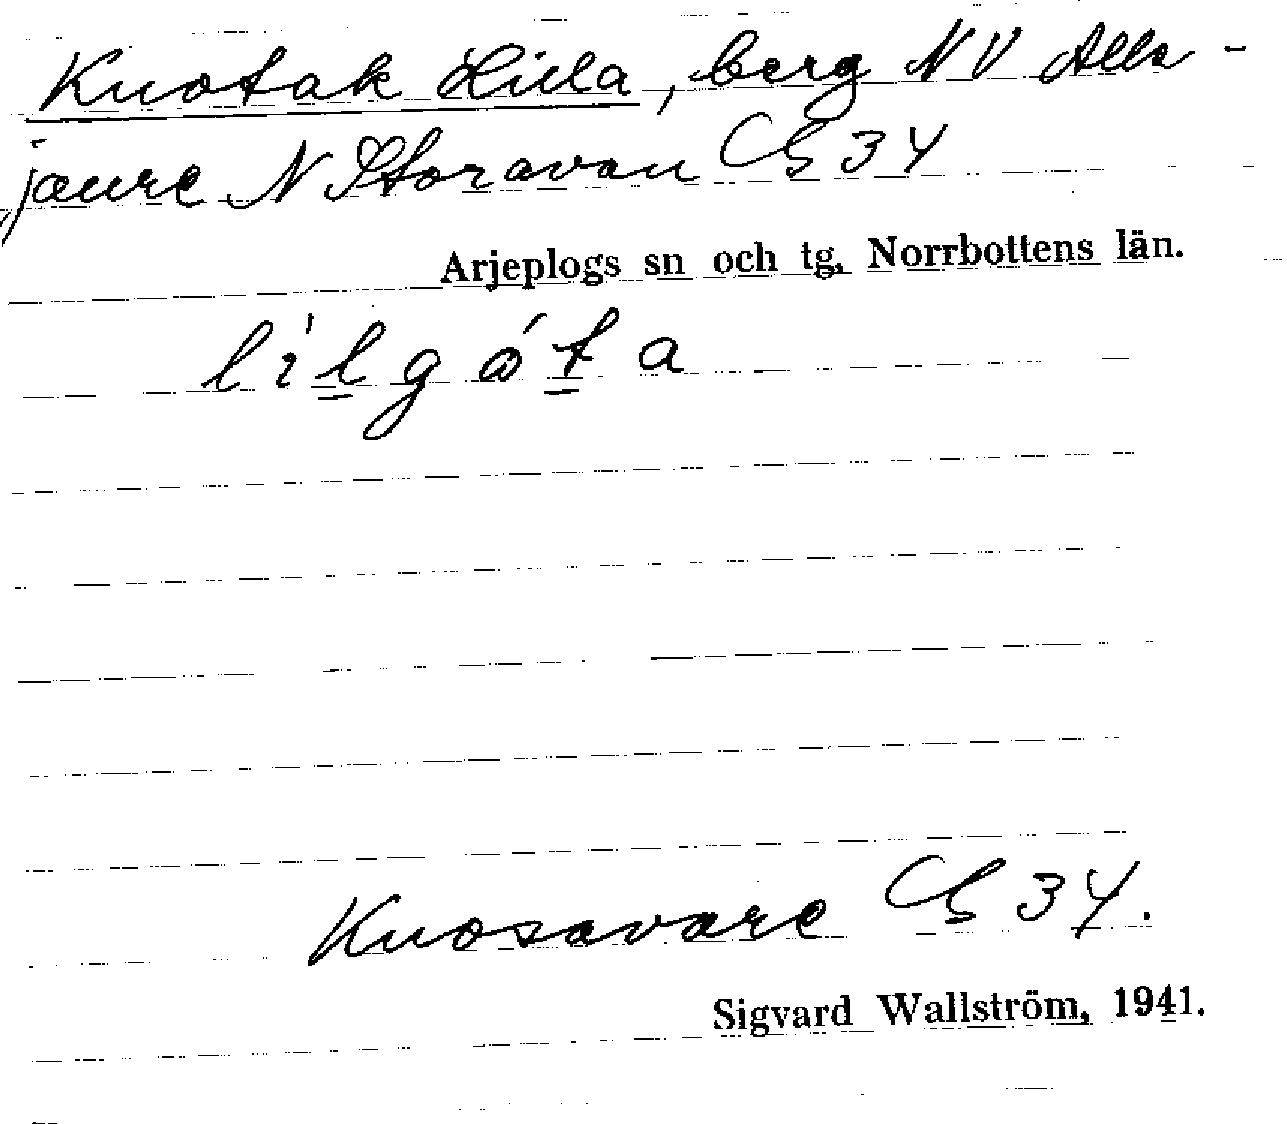 Knotak Lilla, berg NV Alla-
jaure N Storavan GS 34
Arjeplogs sn och tg, Norrbottens län.
lìlgǻta
Knosavare GS 34.
Sigvard Wallström, 1941.